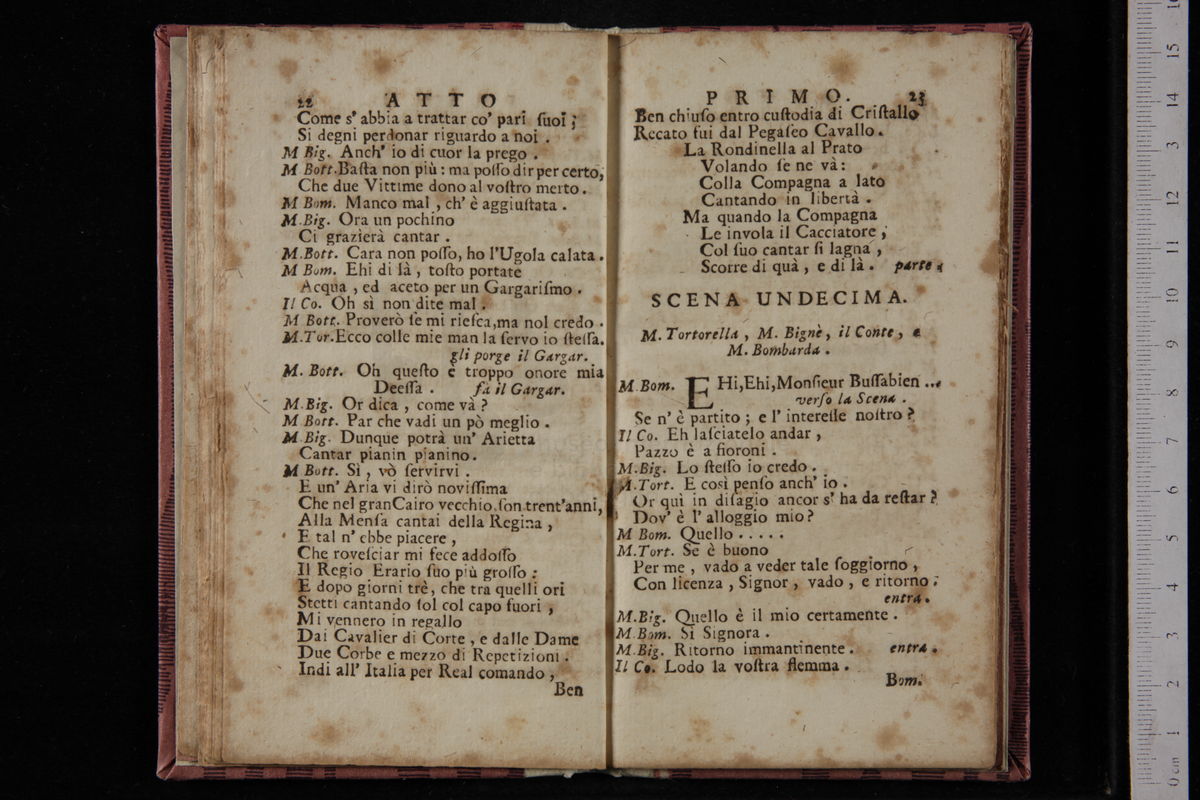 22 ATTO
Come s' abbia a trattar co' pari ſuoi ;
Si degni perdonar riguardo a noi .
M Big. Anch' io di cuor la prego .
M Bott. Baſta non più : ma poſſo dir per certo,
Che due Vittime dono al voſtro merto .
M Bom. Manco mal , ch' è aggiuſtata .
M.Big. Ora un pochino
Ci grazierà cantar .
M.Bott. Cara non poſſo, ho l'Ugola calata .
M Bom. Ehi di là , toſto portate
Acqua , ed aceto per un Gargariſmo .
Il Co. Oh sì non dite mal .
M Bott. Proverò ſe mi rieſca, ma nol credo .
M.Tor. Ecco colle mie man la ſervo io ſteſſa.
gli porge il Gargar.
M. Bott. Oh queſto è troppo onore mia
Deeſſa . fa il Gargar.
M.Big. Or dica , come và ?
M Bott. Par che vadi un pò meglio .
M.Big. Dunque potrà un' Arietta
Cantar pianin pianino.
M Bott. Sì , vò ſervirvi .
E un' Aria vi dirò noviſſima
Che nel gran Cairo vecchio, ſon trent'anni,
Alla Menſa cantai della Regina ,
E tal n' ebbe piacere ,
Che roveſciar mi fece addoſſo
Il Regio Erario ſuo più groſſo :
E dopo giorni trè, che tra quelli ori
Stetti cantando ſol col capo fuori ,
Mi vennero in regallo
Dai Cavalier di Corte , e dalle Dame
Due Corbe e mezzo di Repetizioni .
Indi all' Italia per Real comando ,
Ben
PRIMO. 23
Ben chiuſo entro cuſtodia di Criſtallo
Recato fui dal Pegaſeo Cavallo .
La Rondinella al Prato
Volando ſe ne và :
Colla Compagna a lato
Cantando in libertà .
Ma quando la Compagna
Le invola il Cacciatore ,
Col ſuo cantar ſi lagna ,
Scorre di quà , e di là . parte .
SCENA UNDECIMA.
M. Tortorella , M. Bignè, il Conte, e
M. Bombarda .
M Bom. EHi, Ehi, Monſieur Buſſabien ...
verſo la Scena .
Se n' è partito ; e l' intereſſe noſtro ?
Il Co. Eh laſciatelo andar ,
Pazzo è a fioroni .
M.Big. Lo ſteſſo io credo .
M.Tort. E così penſo anch' io .
Or quì in diſagio ancor s' ha da reſtar ?
Dov' è l' alloggio mio ?
M Bom. Quello . . . . .
M.Tort. Se è buono
Per me , vado a veder tale ſoggiorno ,
Con licenza , Signor , vado , e ritorno .
entra.
M.Big. Quello è il mio certamente .
M.Bom. Sì Signora .
M.Big. Ritorno immantinente . entra .
Il Co. Lodo la voſtra flemma .
Bom.